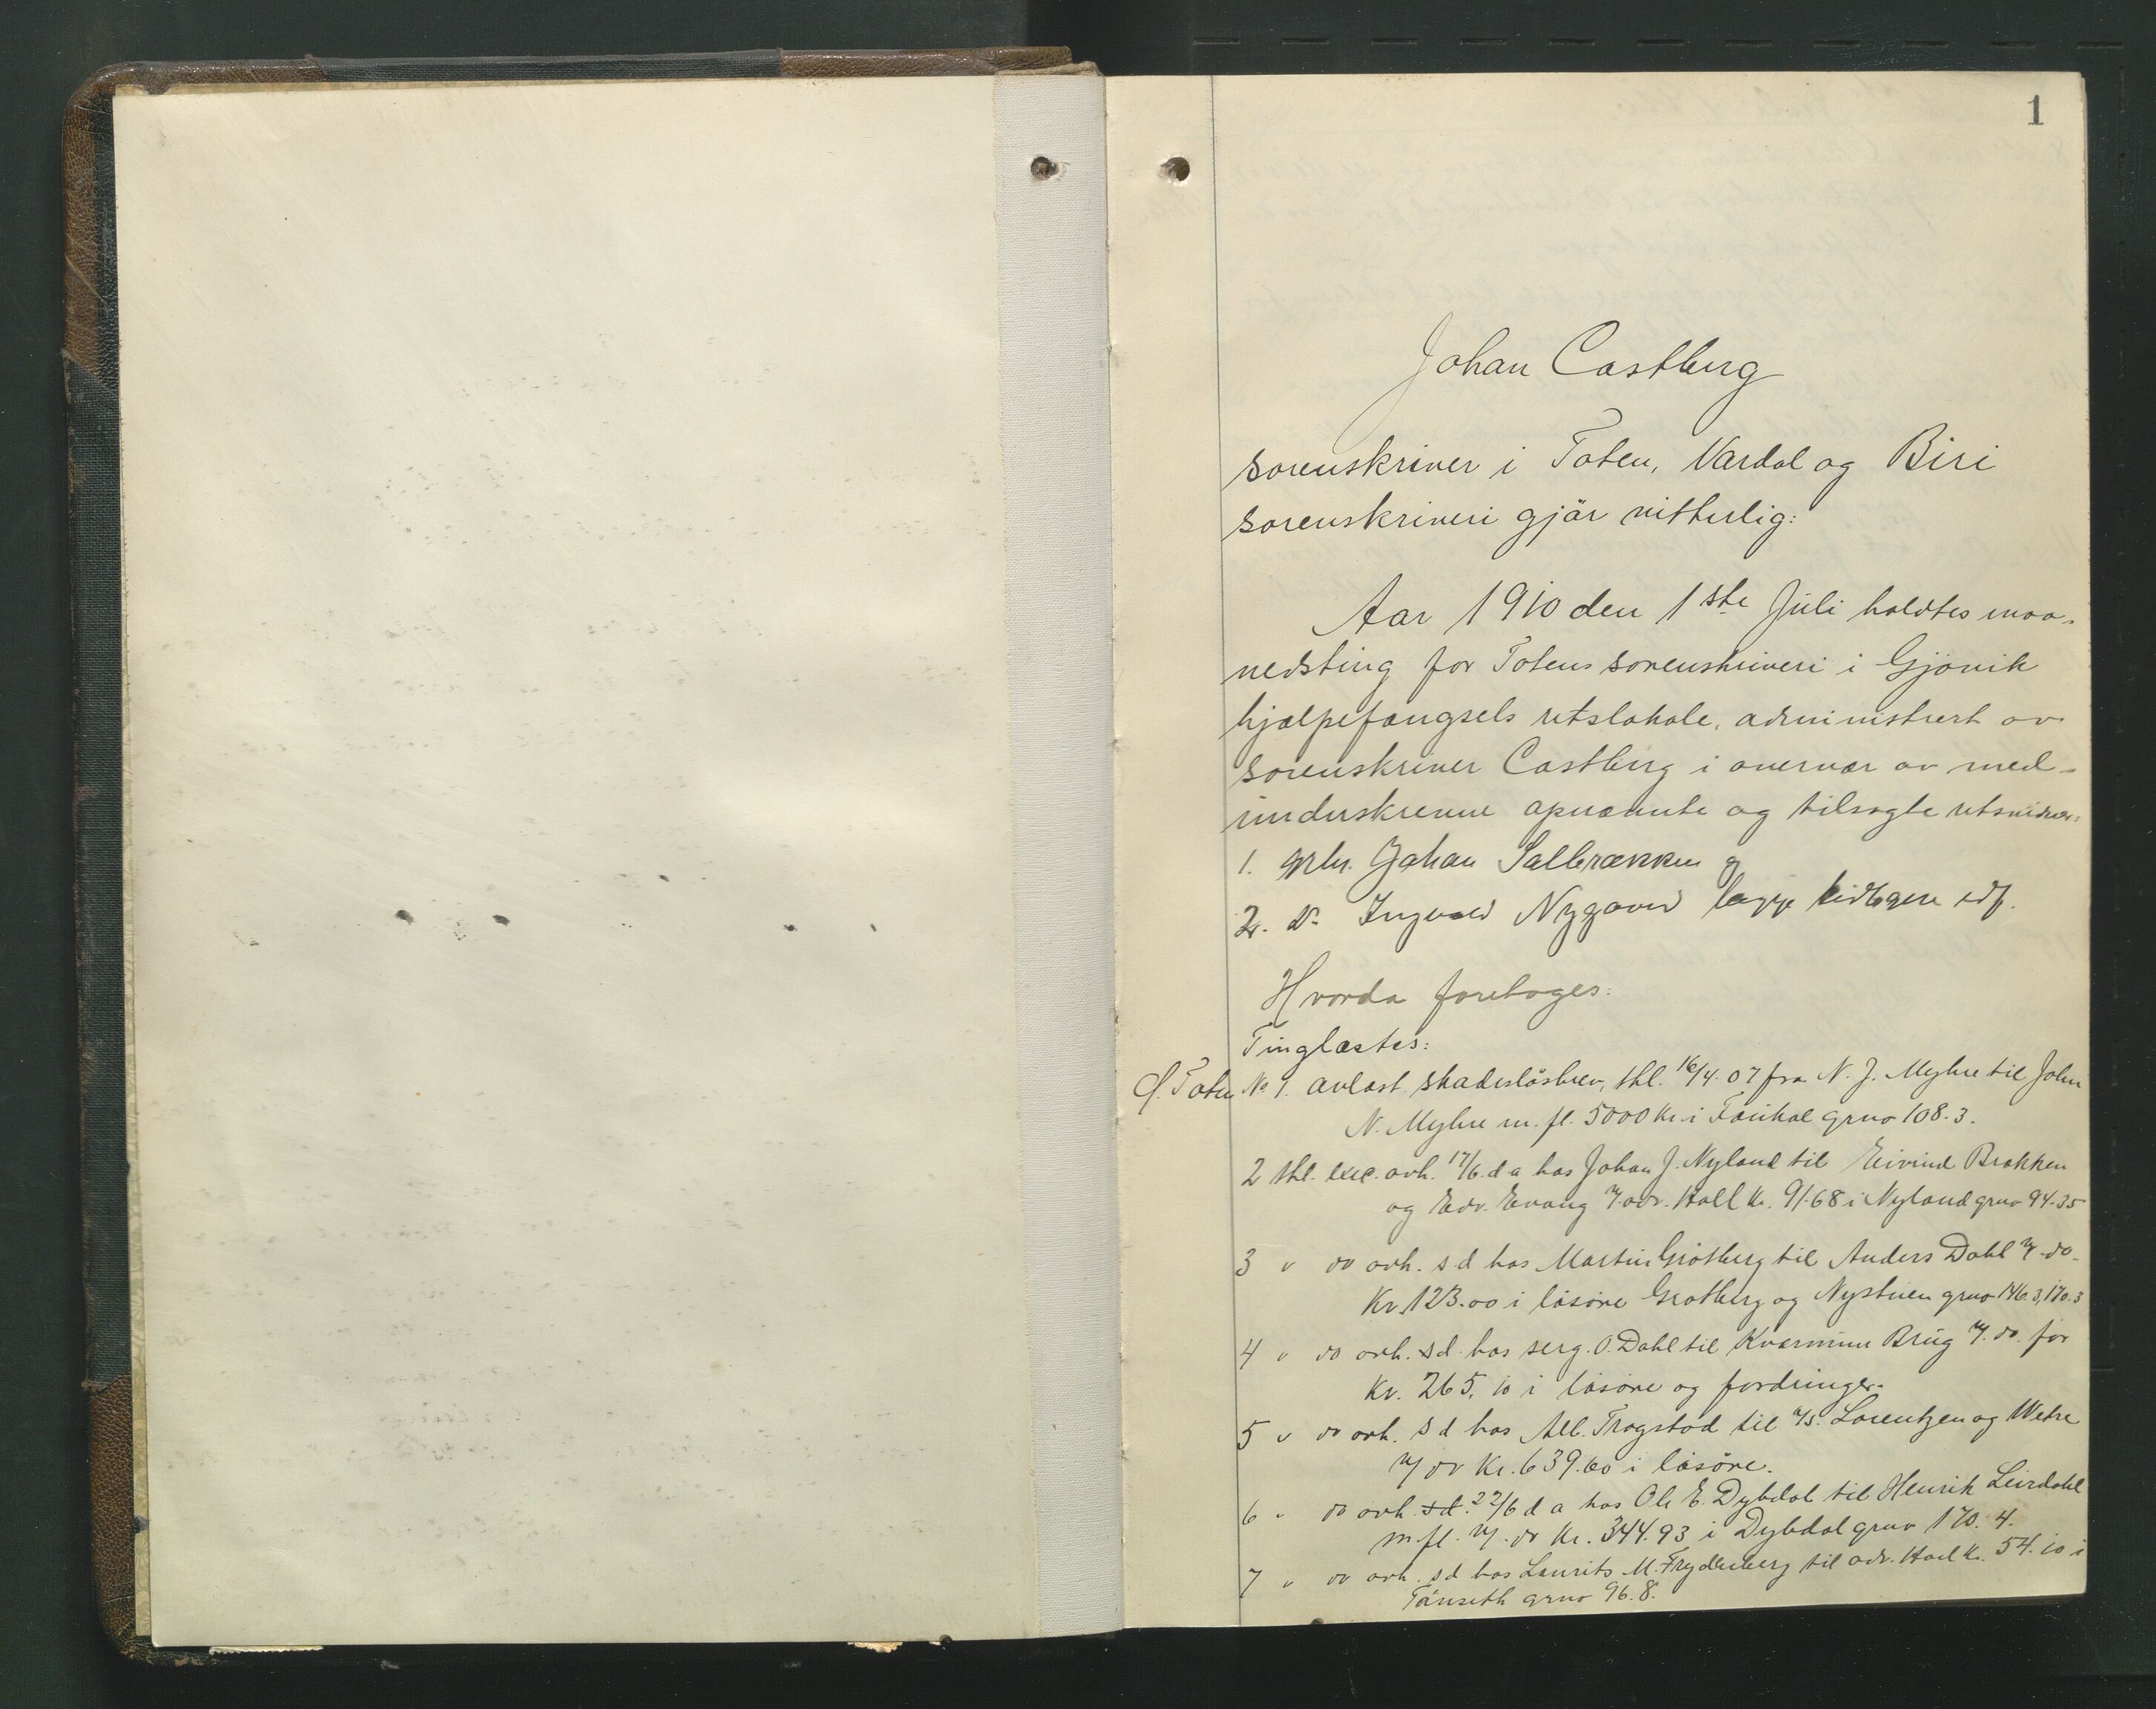 1
Johan Castberg
sorenskriver i Toten, Vardal og Biri
sorenskriveri gjör vitterlig:
Aar 1910 den 1ste Juli holdtes maa-
nedsting for Totens sorenskriveri i Gjövik
hjælpefængsels retslokale, administrert av
sorenskriver Castberg i overvær av med-
underskrevne opnævnte og tilsagte retsvidner:
1. Johan og
2. Do Ingvald Nygaard edf.
Hvorda foretoges:
Tinglæstes:
Ö. Toten No 1. avlæst skadeslösbrev, thl. 16/4. 07 fra N. J. Myhre til John
N. Myhre m. fl. 5000 Kr. i Faukal grno 108.3.
2 thl. exec. avh. 17/6 d a hos Johan J. Nyland til Eivind Brakken
og Edv. Evang v/ adv. Hall kr. 91.68 i Nyland grno 94.35
3 " do avh. s d hos Martin Grötberg til Anders Dahl v/ do
Kr. 123.00 i lösöre Grötberg og Nystuen grno 146.3, 170.3
4 " do avh. s d. hos serg. O. Dahl til Kværnum Brug v/ do. for
Kr. 265.10 i lösöre og fordringer.
5 " do avh. s d hos Alb. Trogstad til A/S. Lorentzen og Wetre
v/ do Kr. 639.60 i lösöre.
6 " do avh. s d. 22/6 d a hos Ole E. Dybdal til Henrik Leirdahl
m. fl. v/ do Kr. 344.93 i Dybdal grno 170.4.
7 " do avh. s d hos Laurits M. Frydenberg til adv. Hall kr. 54.10 i
grno 96.8.